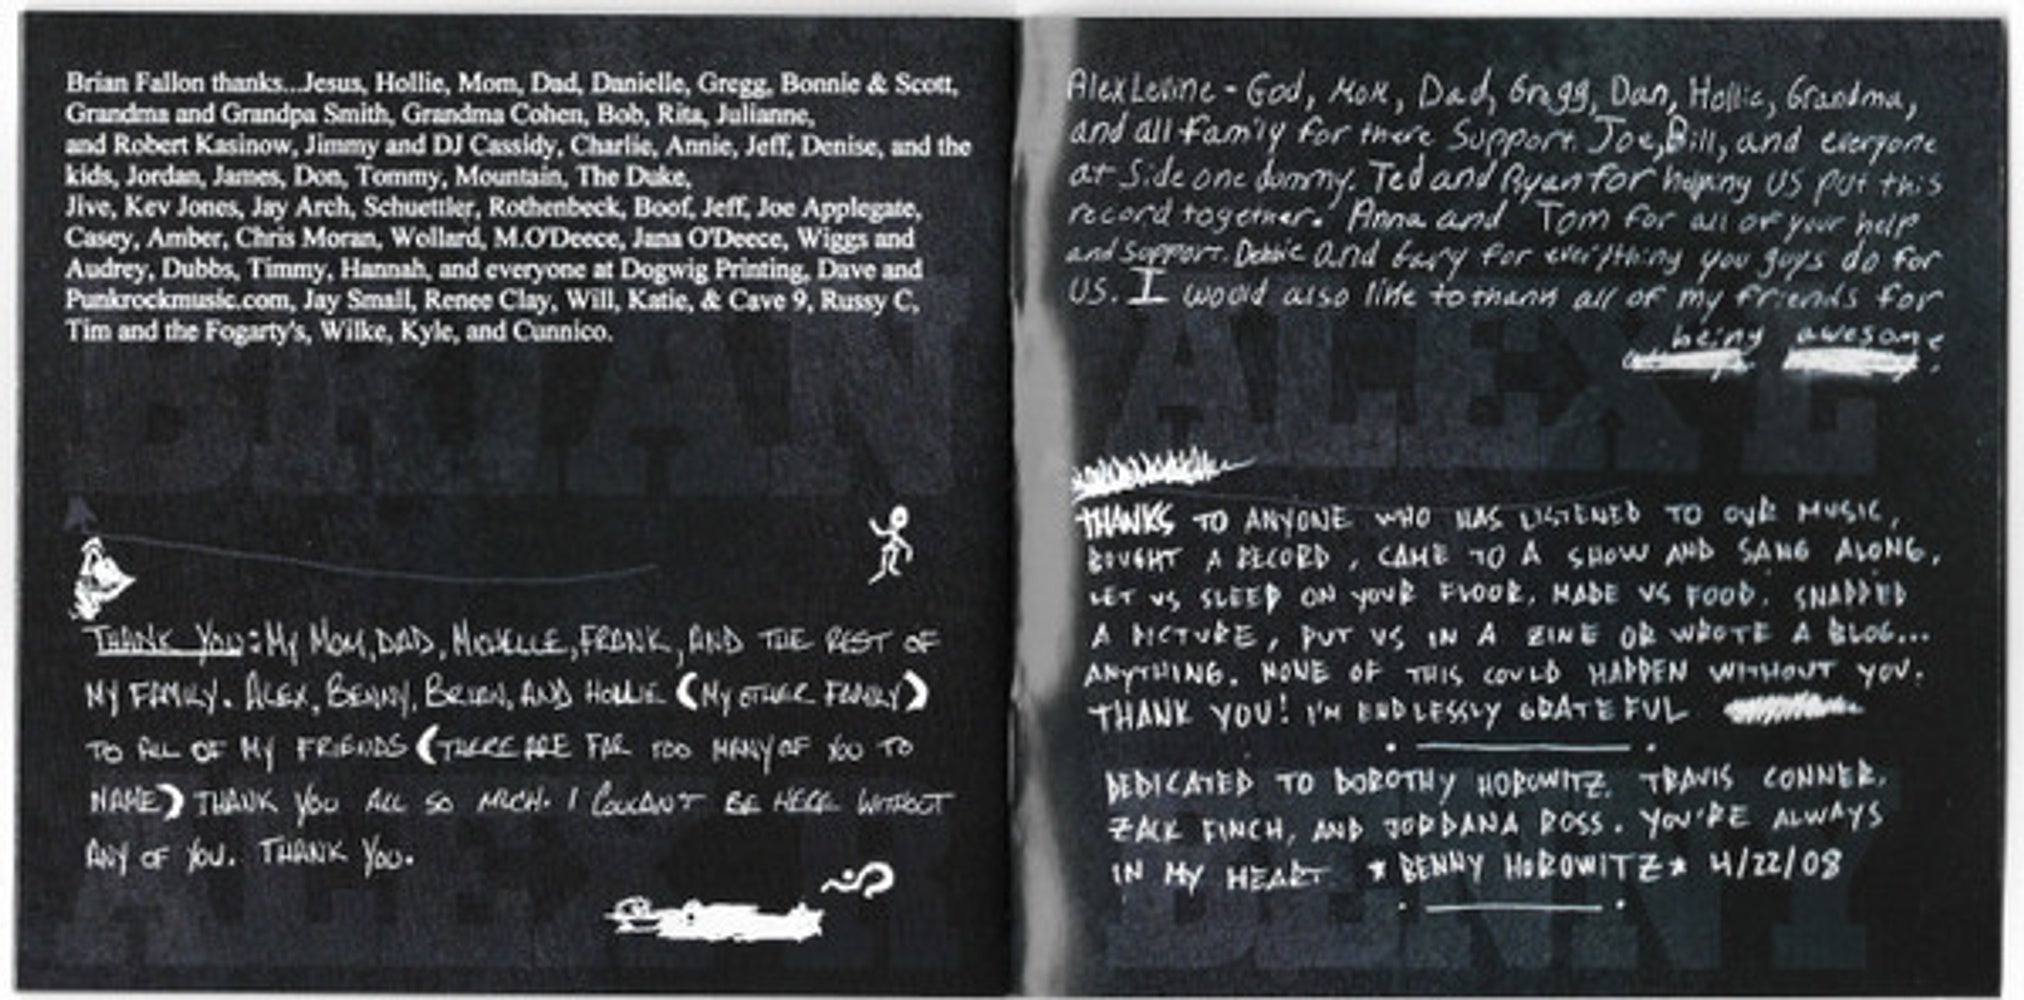 Brian Fallon thanks...Jesus, Hollie, Mom, Dad, Danielle, Gregg, Bonnie & Scott,
Grandma and Grandpa Smith, Grandma Cohen, Bob, Rita, Julianne,
and Robert Kasinow, Jimmy and DJ Cassidy, Charlie, Annie, Jeff, Denise, and the
kids, Jordan, James, Don, Tommy, Mountain, The Duke,
Jive, Kev Jones, Jay Arch, Schuettler, Rothenbeck, Boof, Jeff, Joe Applegate,
Casey, Amber, Chris Moran, Wollard, M.O'Deece, Jana O'Deece, Wiggs and
Audrey, Dubbs, Timmy, Hannah, and everyone at Dogwig Printing, Dave and
Punkrockmusic.com, Jay Small, Renee Clay, Will, Katie, & Cave 9, Russy C,
Tim and the Fogarty's, Wilke, Kyle, and Cunnico.
BRIAN
THANK YOU: MY MOM, DAD, MICHELLE, FRANK, AND THE REST OF
MY FAMILY. ALEX, BENNY, BRIAN, AND HOLLIE (MY OTHER FAMILY)
TO ALL OF MY FRIENDS (THERE ARE FAR TOO MANY OF YOU TO
NAME) THANK YOU ALL SO MUCH. I COULDN'T BE HERE WITHOUT
ANY OF YOU. THANK YOU.
ALEX R
Alex Levine - God, Mom, Dad, Gregg, Dan, Hollie, Grandma,
and all family for there Support. Joe, Bill, and everyone
at Side one dummy. Ted and Ryan for helping US put this
record together. Anna and Tom for all of your help
and support. Debbie and Gary for everything you guys do for
US. I would also like to thank all of my friends for
being awesome.
ALEX L
THANKS TO ANYONE WHO HAS LISTENED TO OUR MUSIC,
BOUGHT A RECORD, CAME TO A SHOW AND SANG ALONG,
LET US SLEEP ON YOUR FLOOR, MADE US FOOD, SNAPPED
A PICTURE, PUT US IN A ZINE OR WROTE A BLOG...
ANYTHING. NONE OF THIS COULD HAPPEN WITHOUT YOU.
THANK YOU! I'M ENDLESSLY GRATEFUL
DEDICATED TO DOROTHY HOROWITZ, TRAVIS CONNER,
ZACK FINCH, AND JORDANA ROSS. YOU'RE ALWAYS
IN MY HEART *BENNY HOROWITZ* 4/22/08
BENNY